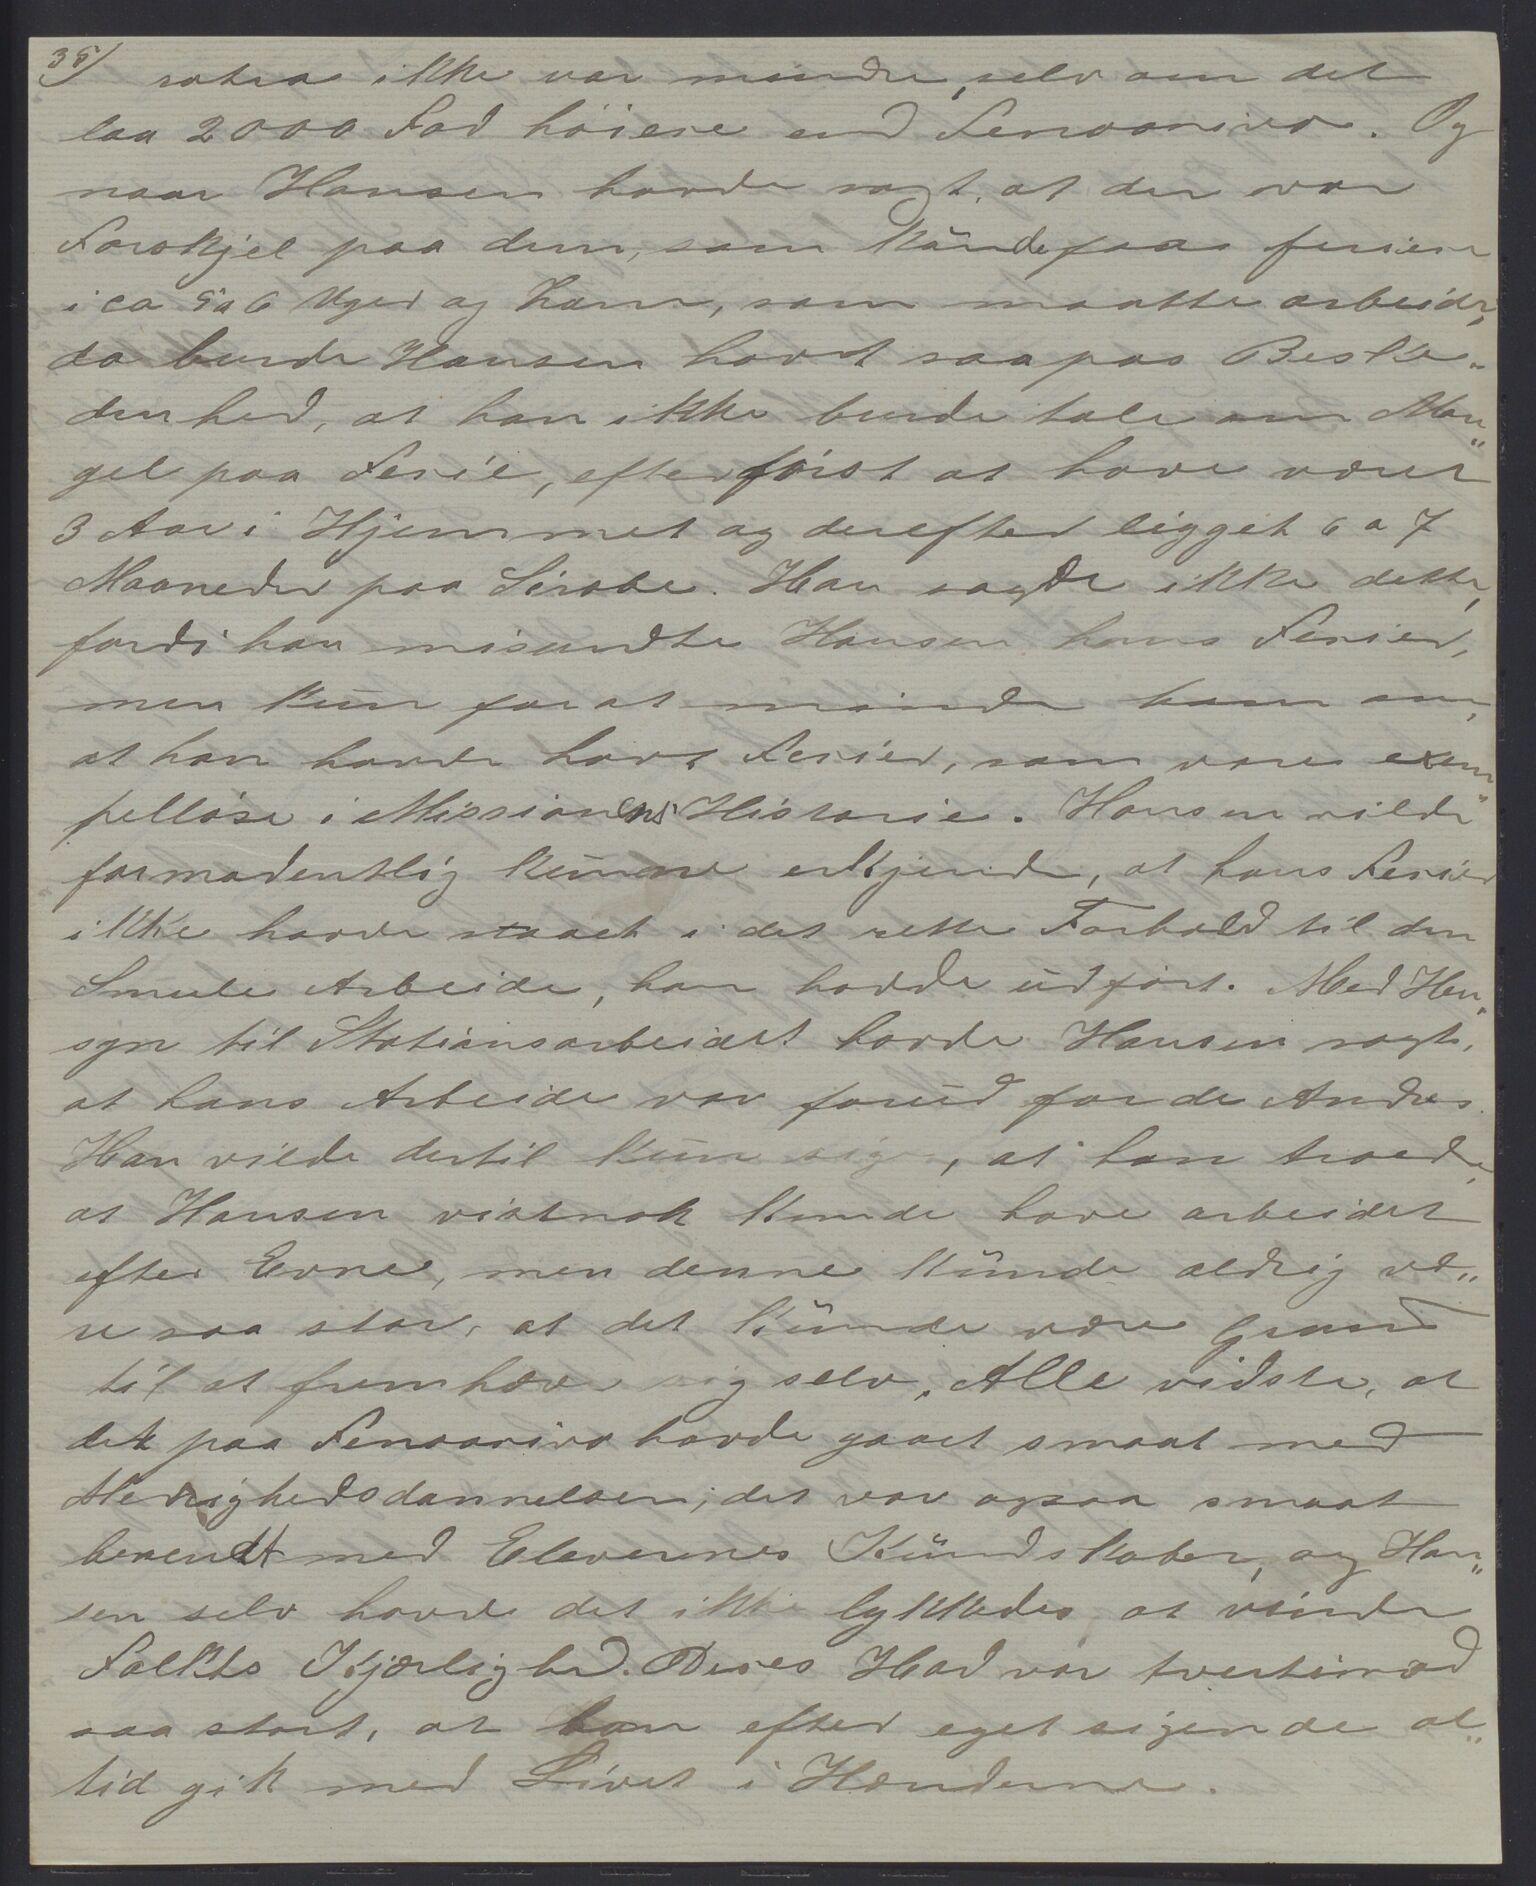 35/ rotra ikke var mindre, selv om det
laa 2000 Fod höiere end Fenoarivo. Og
naar Hansen havde sagt, at der var
Forskjel paa dem, som kunde faa ferier
i ca 5 a 6 Uger og ham, som maatte arbeide,
da burde Hansen havt saapas Beske„
denhed, at han ikke burde tale om Man„
gel paa Ferie, efter först at have været
3 Aar i Hjemmet og derefter ligget 6 a 7
Maaneder paa Sirabe. Han sagde ikke dette,
fordi han misundte Hansen hans Ferier,
men kun for at minde ham om,
at han havde havt Ferier, som vare exem„
pellöse i Missionens Historie. Hansen vilde
formodentlig kunne erkjende, at hans Ferier
ikke havde staaet i det rette Forhold til den
Smule Arbeide, han havde udfört. Med Hen„
syn til Stationsarbeidet havde Hansen sagt,
at hans Arbeide var forud for de Andres.
Han vilde dertil kun sige, at han troede,
at Hansen vistnok kunde have arbeidet
efter Evne, men denne kunde aldrig væ„
re saa stor, at det kunde være Grund
til at fremhæve sig selv. Alle vidste, at
det paa Fenoarivo havde gaaet smaat med
Menighedsdannelsen; det var ogsaa smaat
bevendt med Elevernes Kundskaber, og Han„
sen selv havde det ikke lykkedes at vinde
Folkets Kjærlighed. Deres Had var tvertimod
saa stort, at han efter eget sigende al„
tid gik med Livet i Hænderne.